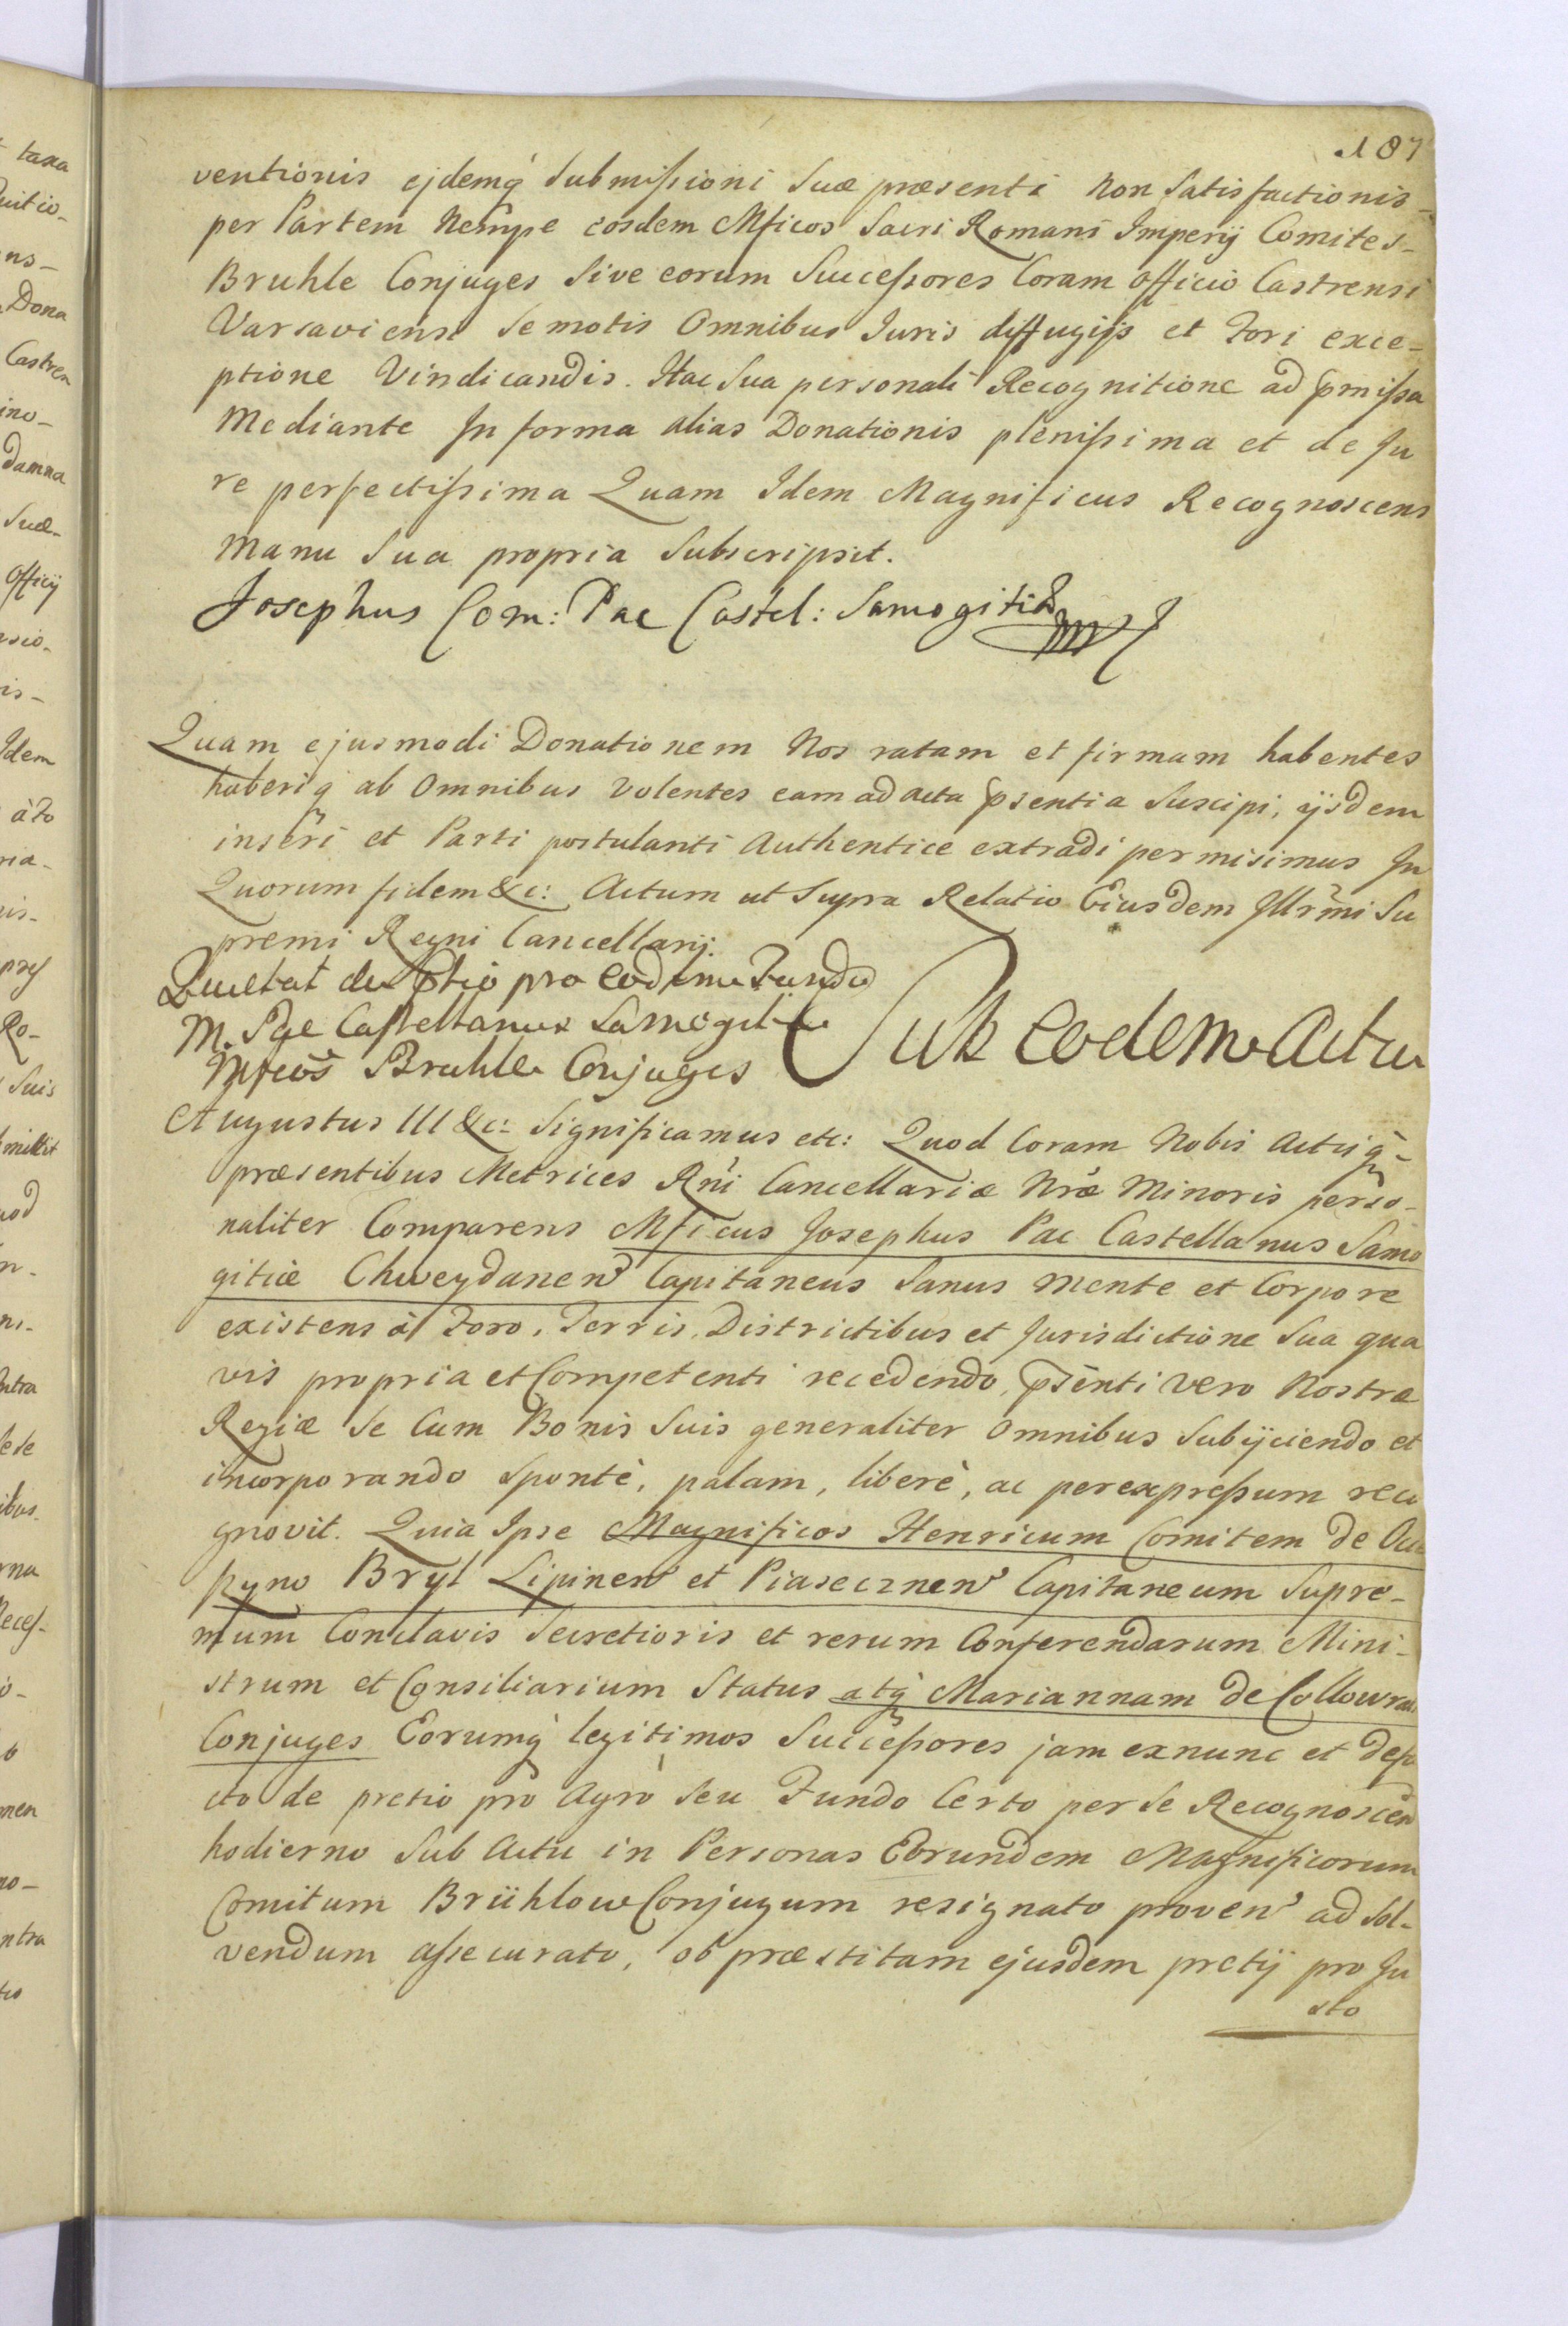 187
ventionis ejdemq́ Submissioni Suæ præsenti non Satisfactionis
per Partem Nempe eosdem Mficos Sacri Romani Imperij Comites
Bruhle Conjuges Sive eorum Successores Coram Officio Castrensi
Varsaviensi Semotis Omnibus Juris diffugijs et Fori exce-
ptione Vindicandis. Hac Sua personali Recognitione ad pmissa
Mediante In forma alias Donationis plenissima et de Ju
re perfectissima Quam Idem Magnificus Recognoscens
manu Sua propria Subscripsit.
Josephus Com: Pac Castel: Samogitiæ
Quam ejusmodi Donationem Nos ratam et firmam habentes
haberiq ab Omnibus Volentes eam ad acta psentia Suscipi, ijsdem
inseri et Parti postulanti Authentice extradi permisimus In
Quorum fidem &c: Actum ut Supra Relatio Eiusdem Illrmi Su
premi Regni Cancellarij.
Quietat de ptio pro eodem Fundo
M. Pac Castellanus Samogitiæ
Mficos Bruhle Conjuges
Sub eodem Actu
Augustus III &c: Significamus etc: Quod Coram Nobis Actisq̀-
præsentibus Metrices Rni Cancellariæ Nræ Minoris perso-
naliter Comparens Mficus Josephus Pac Castellanus Samo
gitiæ Chweydanen Capitaneus Sanus mente et Corpore
existens à Foro, Terris, Districtibus et Jurisdictione Sua qua
vis propria et Competenti recedendo, psenti vero Nostræ
Regiæ Se Cum Bonis Suis generaliter Omnibus Subijciendo et
incorporando Spontè, palam, liberè, ac per expressum reco
gnovit. Quia Ipse Magnificos Henricum Comitem de Ocie
szyno Bryl Lipinen et Piaseczinen Capitaneum Supre-
mum Conclavis Secretioris et rerum Conferendarum Mini-
strum et Consiliarium Status atq̀ Mariannam de Collowrat
Conjuges Eorumq̀ legitimos Successores jam exnunc et de
cto de pretio pro Agro Seu Fundo Certo per Se Recognoscen
hodierno Sub Actu in Personas Eorundem Magnificorum
Comitum Brühlow Conjugum resignato proven ad Sol-
vendum assecurato, ob præstitam ejusdem pretij pro Ju
sto